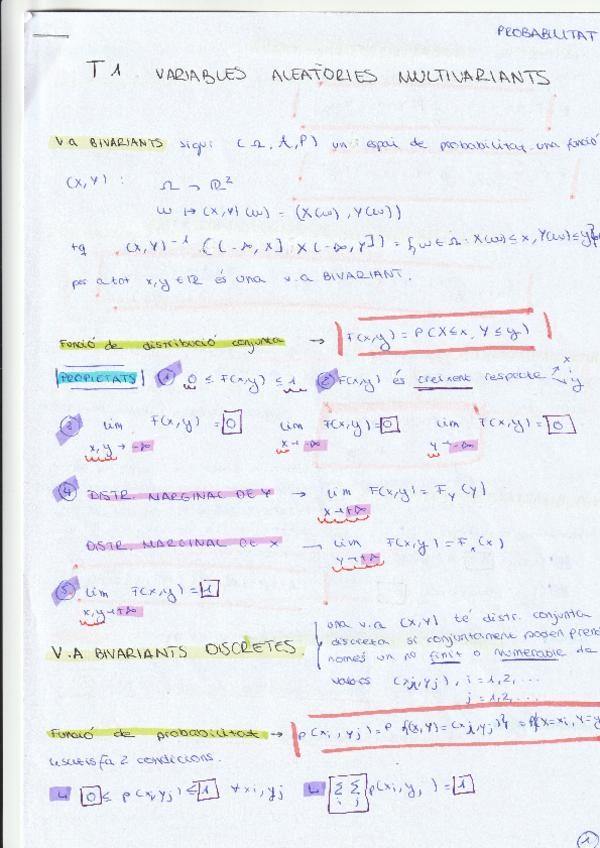 PROBABILITAT
T1 VARIABLES ALEATÒRIES MULTIVARIANTS
V.A BIVARIANTS sigui (Ω, A, P) un espai de probabilitat, una funció
(X,Y) : Ω → ℝ²
ω ↦ (X,Y)(ω) = (X(ω), Y(ω))
tq (X,Y)⁻¹ ((-∞, x] × (-∞, y]) = {ω ∈ Ω : X(ω) ≤ x, Y(ω) ≤ y}
per a tot x,y ∈ ℝ és una v.a BIVARIANT.
Funció de distribució conjunta → F(x,y) = P(X≤x, Y≤y)
PROPIETATS ① 0 ≤ F(x,y) ≤ 1 ② F(x,y) és creixent respecte x y
③ lim F(x,y) = 0 lim F(x,y) = 0 lim F(x,y) = 0
x,y → -∞ x → -∞ y → -∞
④ DISTR. MARGINAL DE Y → lim F(x,y) = F_Y (y)
x → +∞
DISTR. MARGINAL DE X → lim F(x,y) = F_x (x)
y → +∞
⑤ lim F(x,y) = 1
x,y → +∞
V.A BIVARIANTS DISCRETES.
una v.a (X,Y) té distr. conjunta
discreta si conjuntament poden prendre
només un nº finit o numerable de
valors (xi, yj), i = 1,2, ...
j = 1,2, ...
Funció de probabilitat → p(xi, yj) = P{(X,Y) = (xi,yj)} = P{X=xi, Y=y
satisfà 2 condicions.
↳ 0 ≤ p(xi,yj) ≤ 1 ∀xi,yj ↳ Σ Σ p(xi,yj) = 1
i j
1